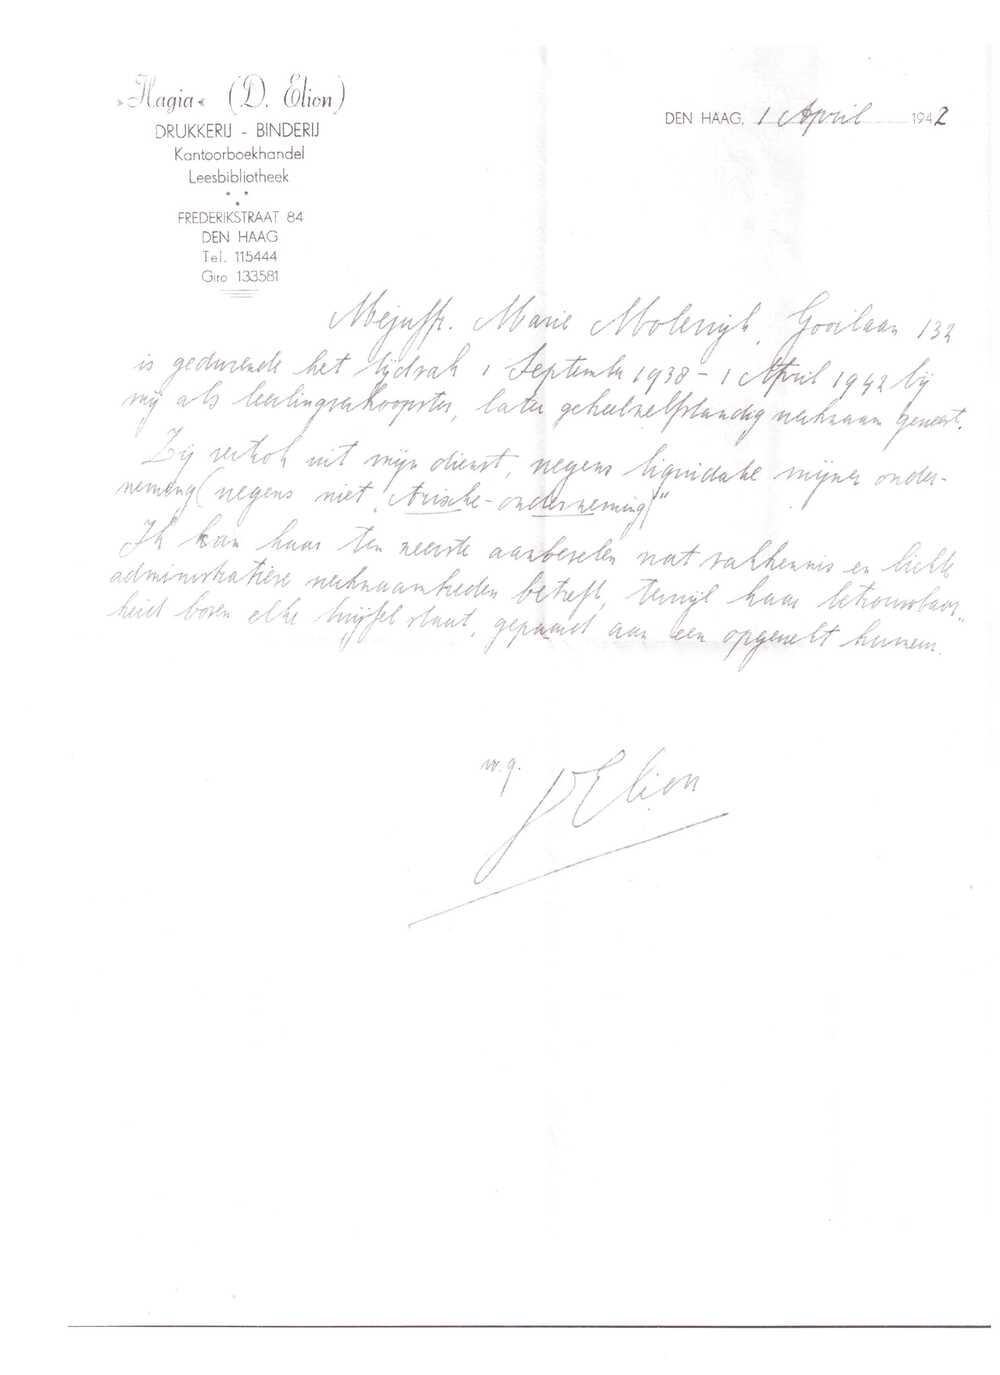 »Hagia« (D. Elion)
DRUKKERIJ - BINDERIJ
Kantoorboekhandel
Leesbibliotheek
FREDERIKSTRAAT 84
DEN HAAG
Tel. 115444
Giro 133581
DEN HAAG, 1 April 1942
Mejuffr. Marie Molenijk, Gooilaan 132
is gedurende het tijdvak 1 September 1938 – 1 April 1942 bij
mij als leerlingverkoopster, later geheel zelfstandig werkzaam geweest.
Zij vertrok uit mijn dienst, wegens liquidatie mijner onder-
neming (wegens niet „Arische-onderneming")
Ik kan haar ten zeerste aanbevelen wat vakkennis en lichte
administratieve werkzaamheden betreft, terwijl haar betrouwbaar-
heid boven elke twijfel staat, gepaard aan een opgewekt humeur.
w.g.
D Elion